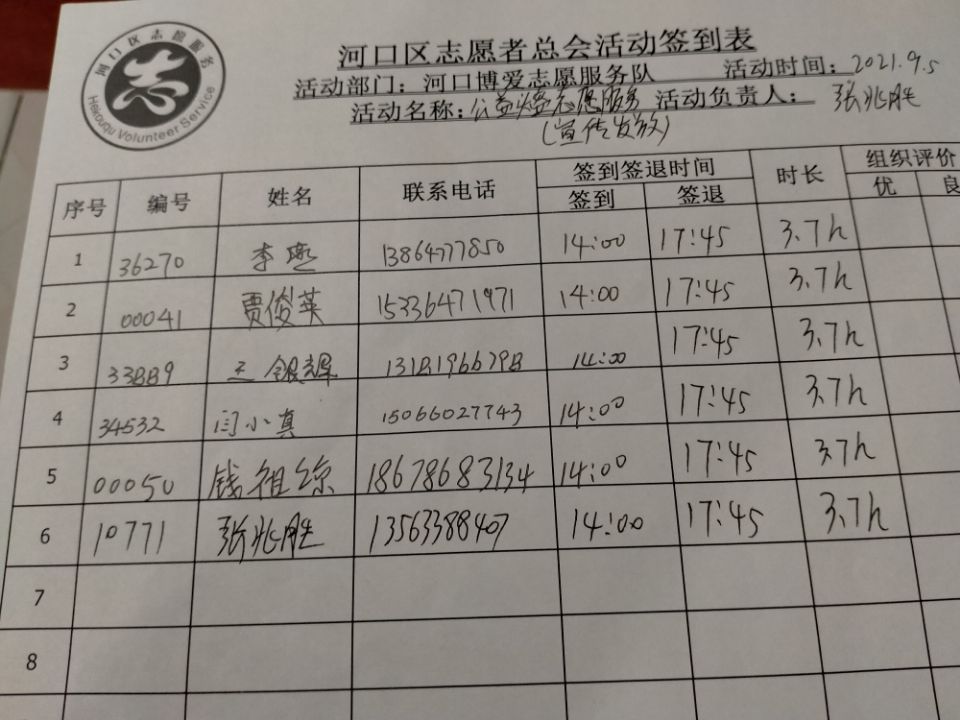 河口区志愿服务
Hekouqu Volunteer Service
河口区志愿者总会活动签到表
活动部门：河口博爱志愿服务队 活动时间：2021.9.5
活动名称：公益 志愿服务 活动负责人：张兆胜
（宣传发放）
序号 编号 姓名 联系电话 签到签退时间 时长 组织评价
签到 签退 优 良
1 36270 李燕 13864777850 14:00 17:45 3.7h
2 00041 贾俊英 15336471971 14:00 17:45 3.7h
3 王银辉 14:00 17:45 3.7h
4 34532 闫小真 15066027743 14:00 17:45 3.7h
5 00050 钱祖琼 18678683134 14:00 17:45 3.7h
6 10771 张兆胜 13563388407 14:00 17:45 3.7h
7
8